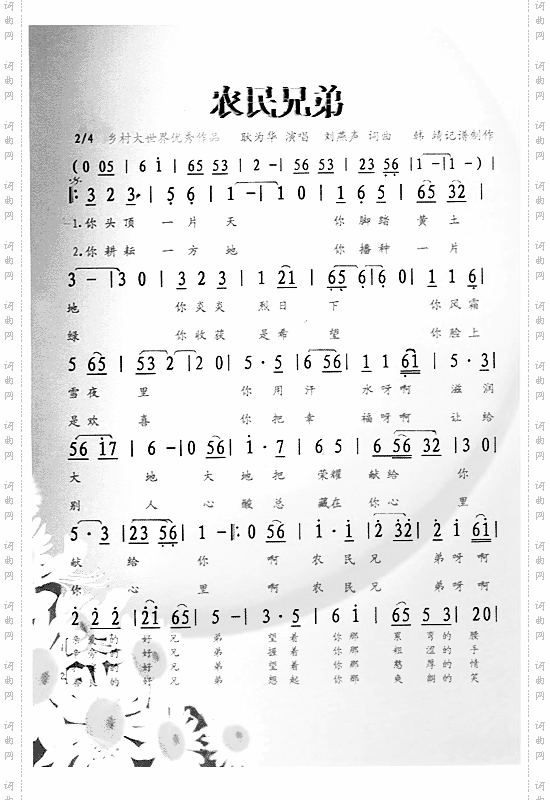 农民兄弟
2/4 乡村大世界优秀作品 耿为华 演唱 刘燕声 词曲 韩 靖记谱制作
(0 05 | 6 i | 65 53 | 2 - | 56 53 | 23 56 | 1 - | 1 - ) |
‖: 3 2 3 | 5 6 | 1 - | 1 0 | 1 6 5 | 65 32 |
1.你头顶 一片 天 你脚踏 黄土
2.你耕耘 一方 地 你播种 一片
3 - | 3 0 | 3 2 3 | 1 21 | 65 6 | 6 0 | 1 1 6 |
地 你炎炎 烈日 下 你风霜
绿 你收获 是希 望 你脸上
5 65 | 53 2 | 2 0 | 5 · 5 | 6 56 | 1 1 61 | 5 · 3 |
雪夜 里 你用汗 水呀啊 滋润
是欢 喜 你把幸 福呀啊 让给
56 i7 | 6 - | 0 56 | i · 7 | 6 5 | 6 56 32 | 3 0 |
大 地 大地把 荣耀 献给 你
别 人 心酸总 藏在 你心 里
5 · 3 | 23 56 | 1 - :‖ 0 56 | i · i | 2 32 | 2 i 6i |
献 给 你 啊 农民兄 弟呀啊
你 心 里 啊 农民兄 弟呀啊
2 2 2 | 2i 65 | 5 - | 3 · 5 | 6 i | 65 5 3 | 20 |
亲爱的 好兄 弟 望着 你那 累弯的 腰
的 好兄 弟 握着 你那 粗涩的 手
的 好兄 弟 望着 你那 憨厚的 情
的 好兄 弟 想起 你那 爽朗的 笑
词曲网